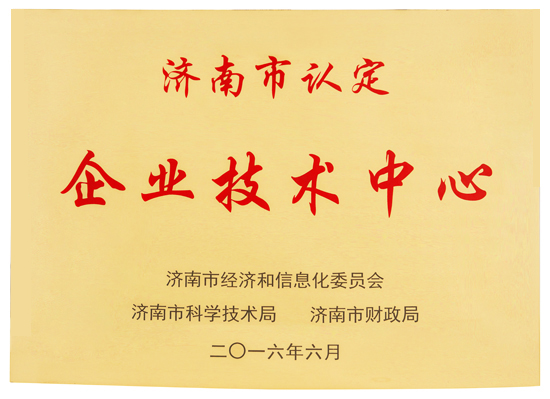 济南市认定
企业技术中心
济南市经济和信息化委员会
济南市科学技术局 济南市财政局
二〇一六年六月